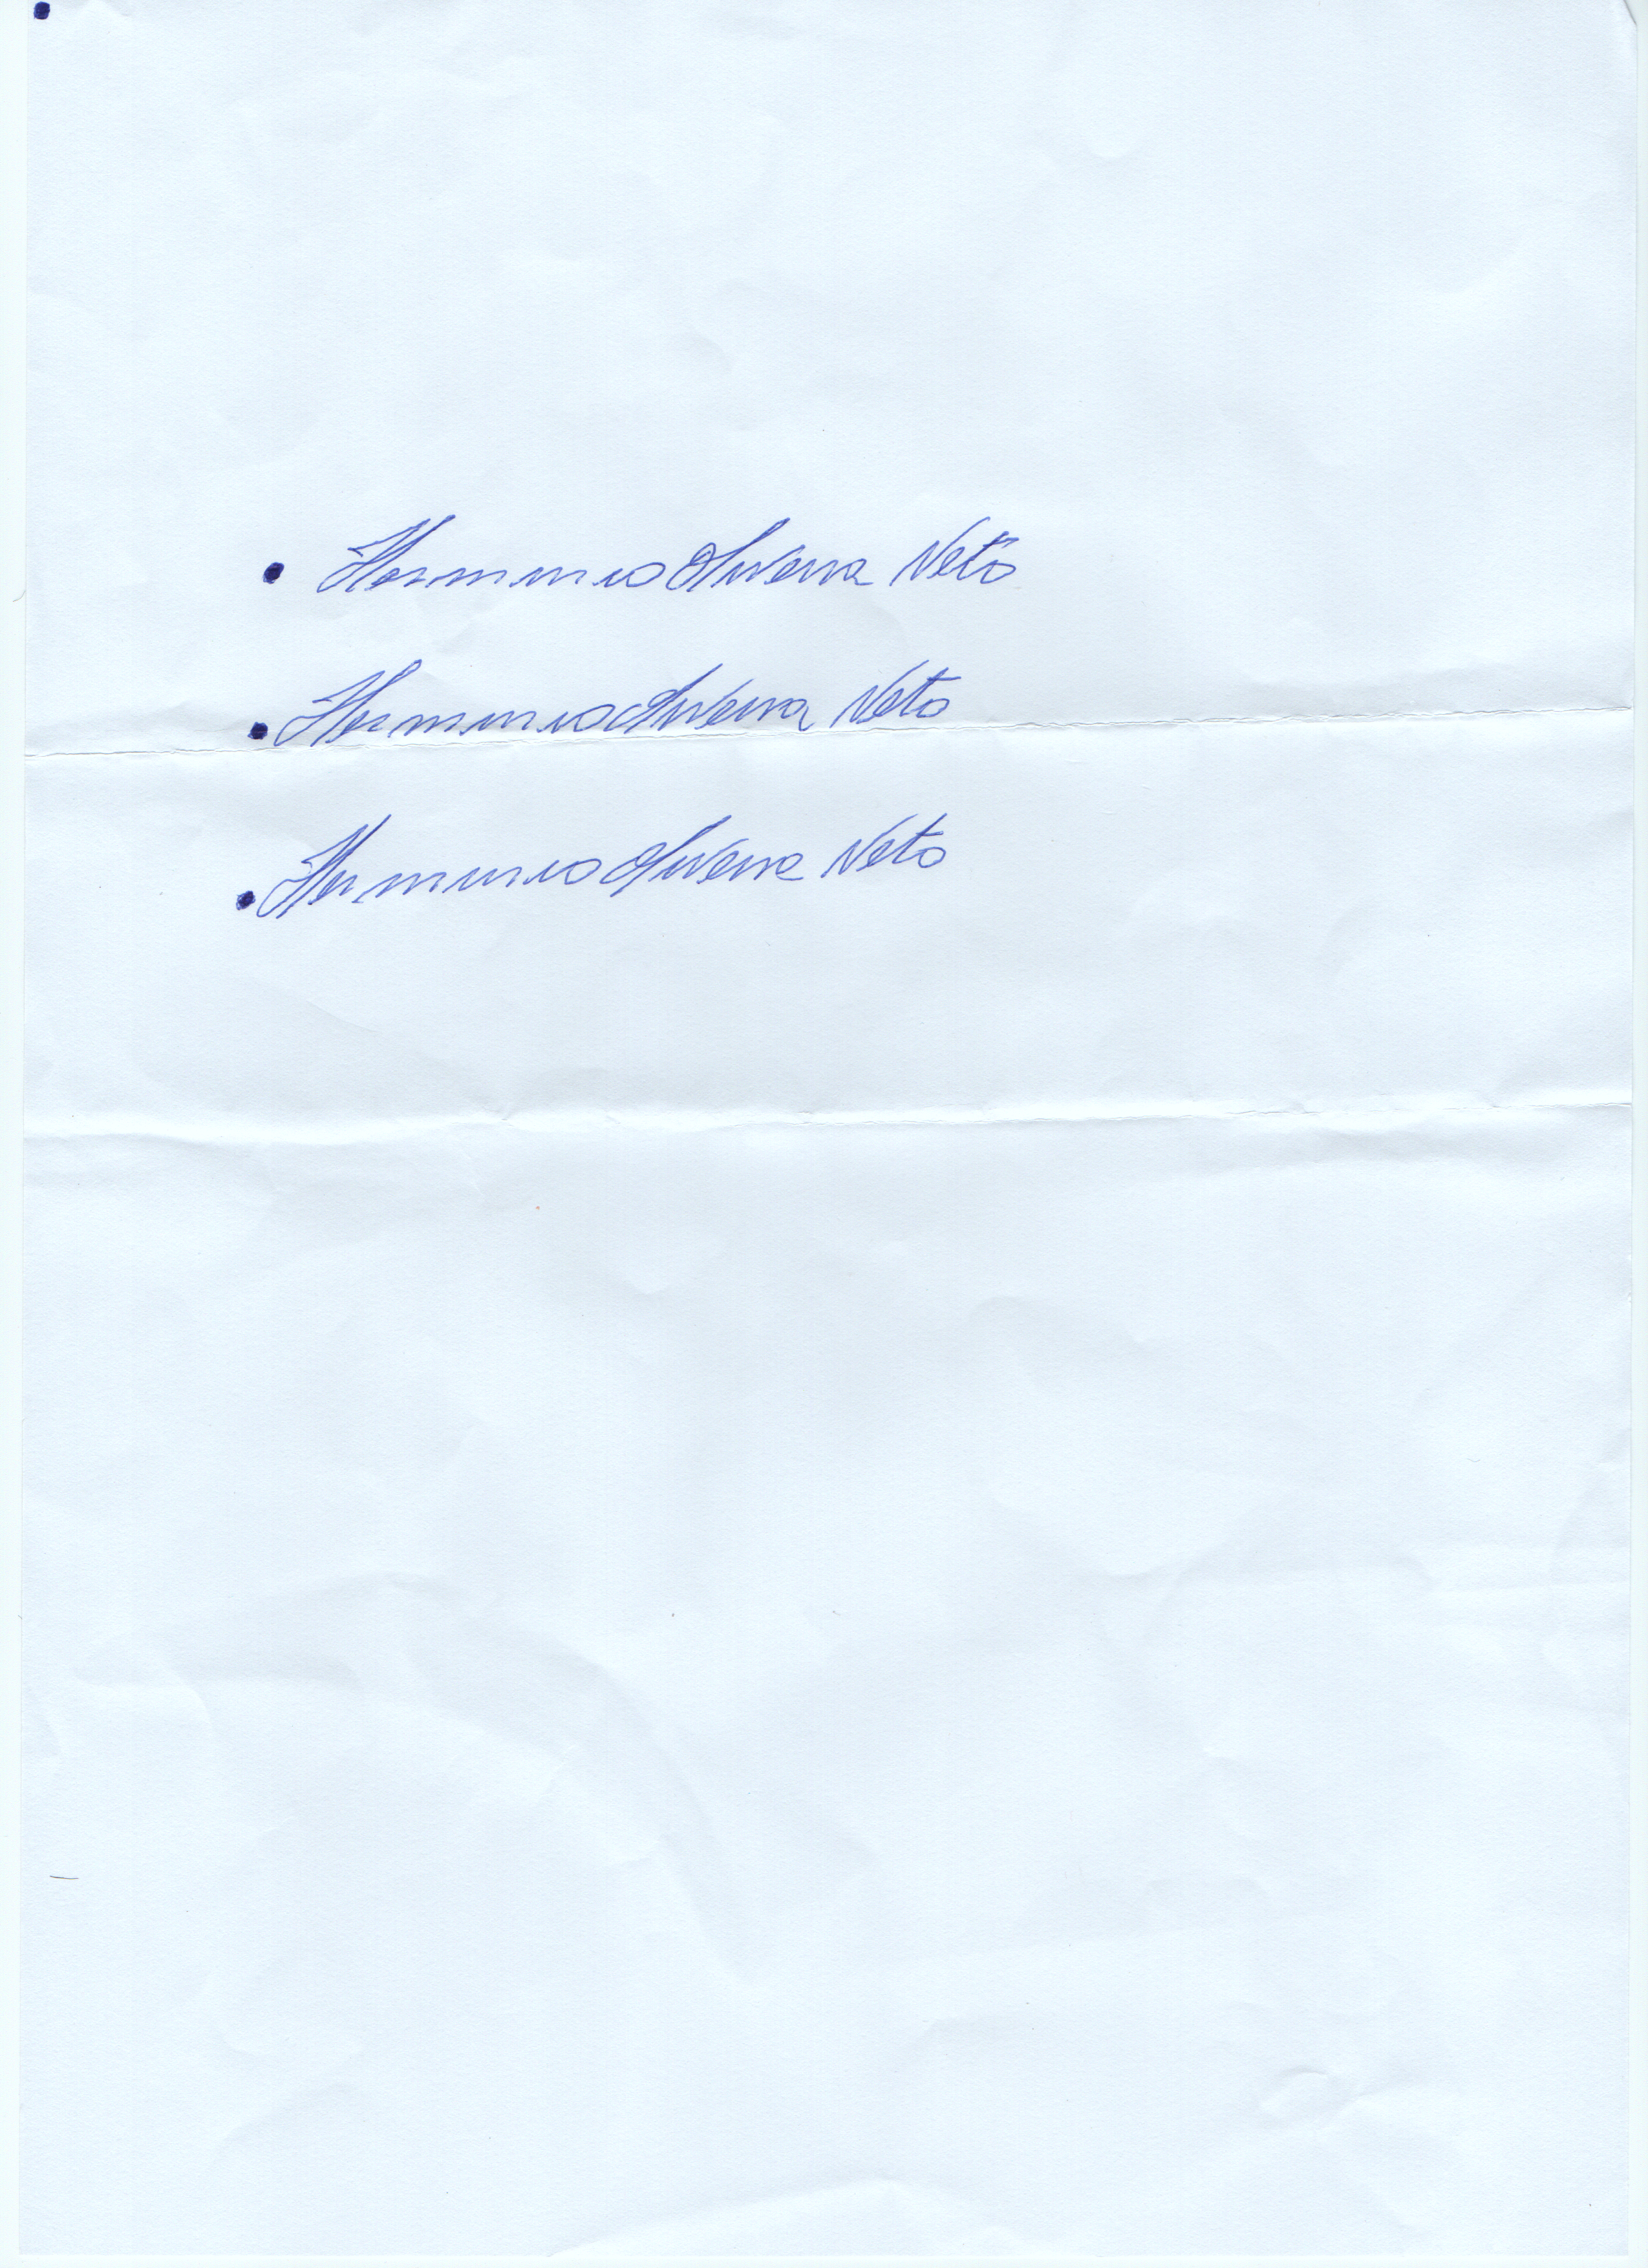 • Herminio Oliveira Neto
• Herminio Oliveira Neto
• Herminio Oliveira Neto